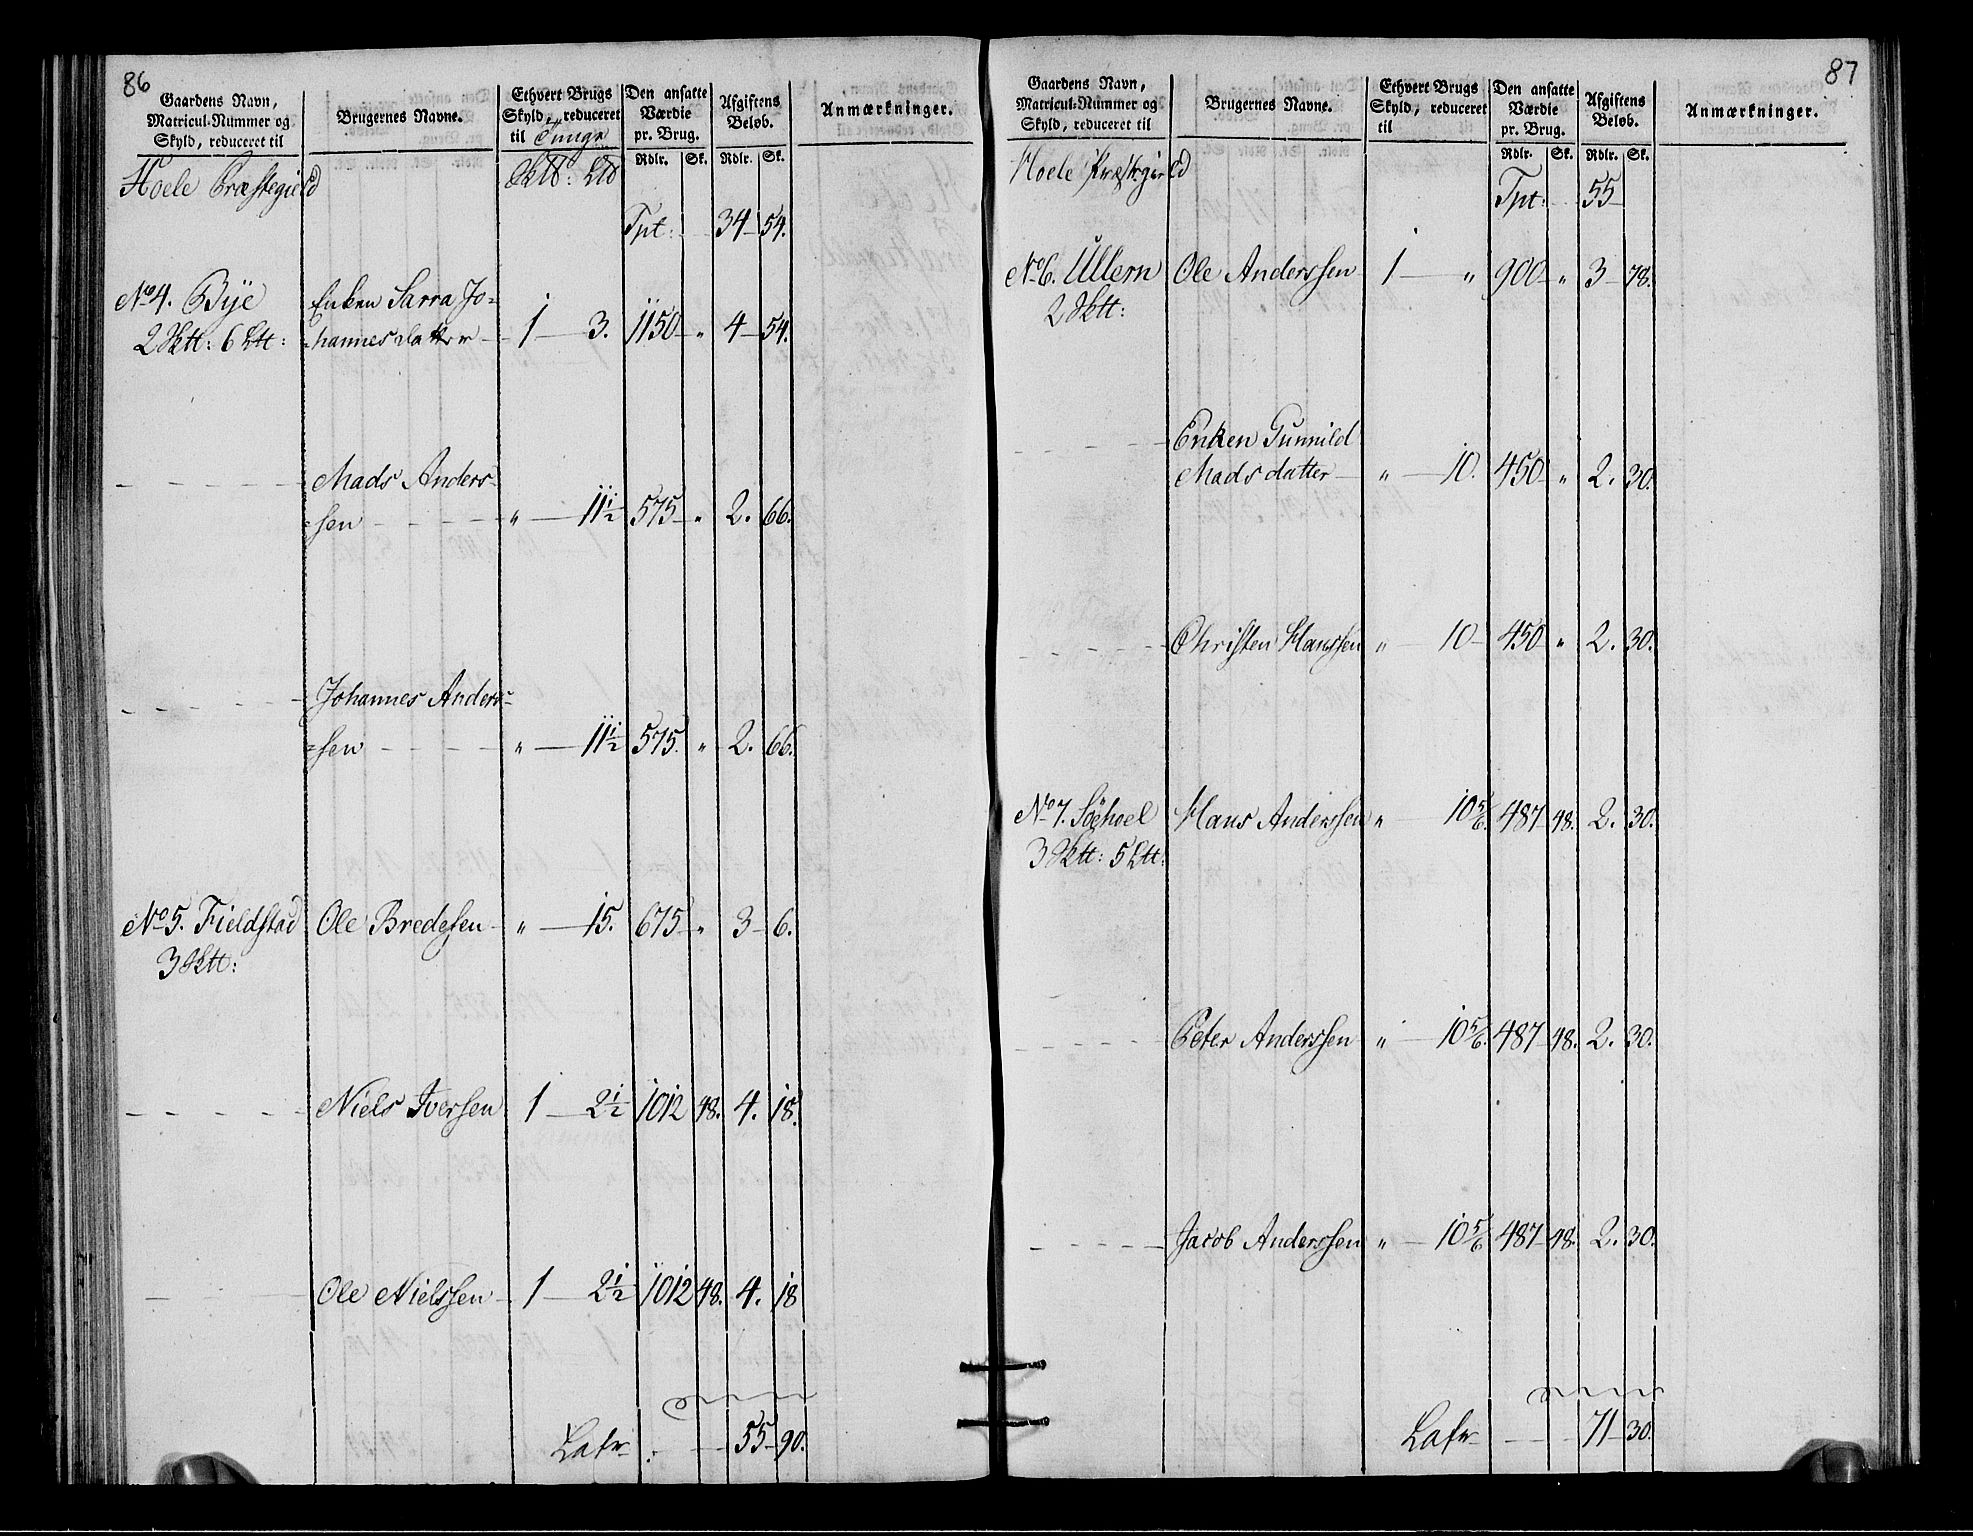 86
Gaardens Navn, Matricul-Nummer og Skyld, reduceret til
Brugernes Navne.
Ethvert Brugs Skyld, reduceret til Tunge
Den ansatte Værdie pr. Brug.
Afgiftens Beløb.
Anmærkninger.
Rdlr. Sk. Rdlr. Sk.
Hoele Præstegield
Tpt: 34 54.
No 4. Bye Enken Sarra Jo-
2 Sktt: 6 Ltt: hannesdatter 1 3. 1150 " 4 54.
Mads Anders-
sen " 11½ 575 " 2. 66.
Johannes Anders-
sen " 11½ 575. " 2. 66.
No 5. Fieldstad Ole Bredesen " 15. 675 " 3 6.
3 Sktt:
Niels Iversen 1 2½ 1012 48. 4. 18.
Ole Nielssen 1 2½ 1012 48. 4. 18
Latr 55 90.
87
Gaardens Navn, Matricul-Nummer og Skyld, reduceret til
Brugernes Navne.
Ethvert Brugs Skyld, reduceret til
Den ansatte Værdie pr. Brug.
Afgiftens Beløb.
Anmærkninger.
Rdlr. Sk. Rdlr. Sk.
Hoele Præstegield
Tpt: 55
No 6. Ullern Ole Anderssen 1 " 900 " 3 78.
2 Sktt:
Enken Gunnild
Madsdatter " 10. 450 " 2. 30.
Christen Hanssen " 10 450 " 2. 30.
No 7. Söehoel Hans Anderssen " 10 5/6. 487 48. 2. 30.
3 Sktt: 5 Ltt:
Peter Anderssen " 10 5/6. 487 48. 2. 30.
Jacob Anderssen " 10 5/6 487 48. 2. 30.
Latr 71 30.